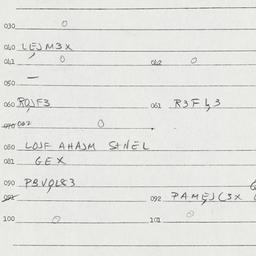 030 0
040 LEJM3X
041 0 042 0
050 —
060 RQJF3 061 R3FL3
062 0
080 LOJF AHAJM SHNEL
081 GEX
090 PBVQL83
092 PAMEJ(3X
100 0 101 0